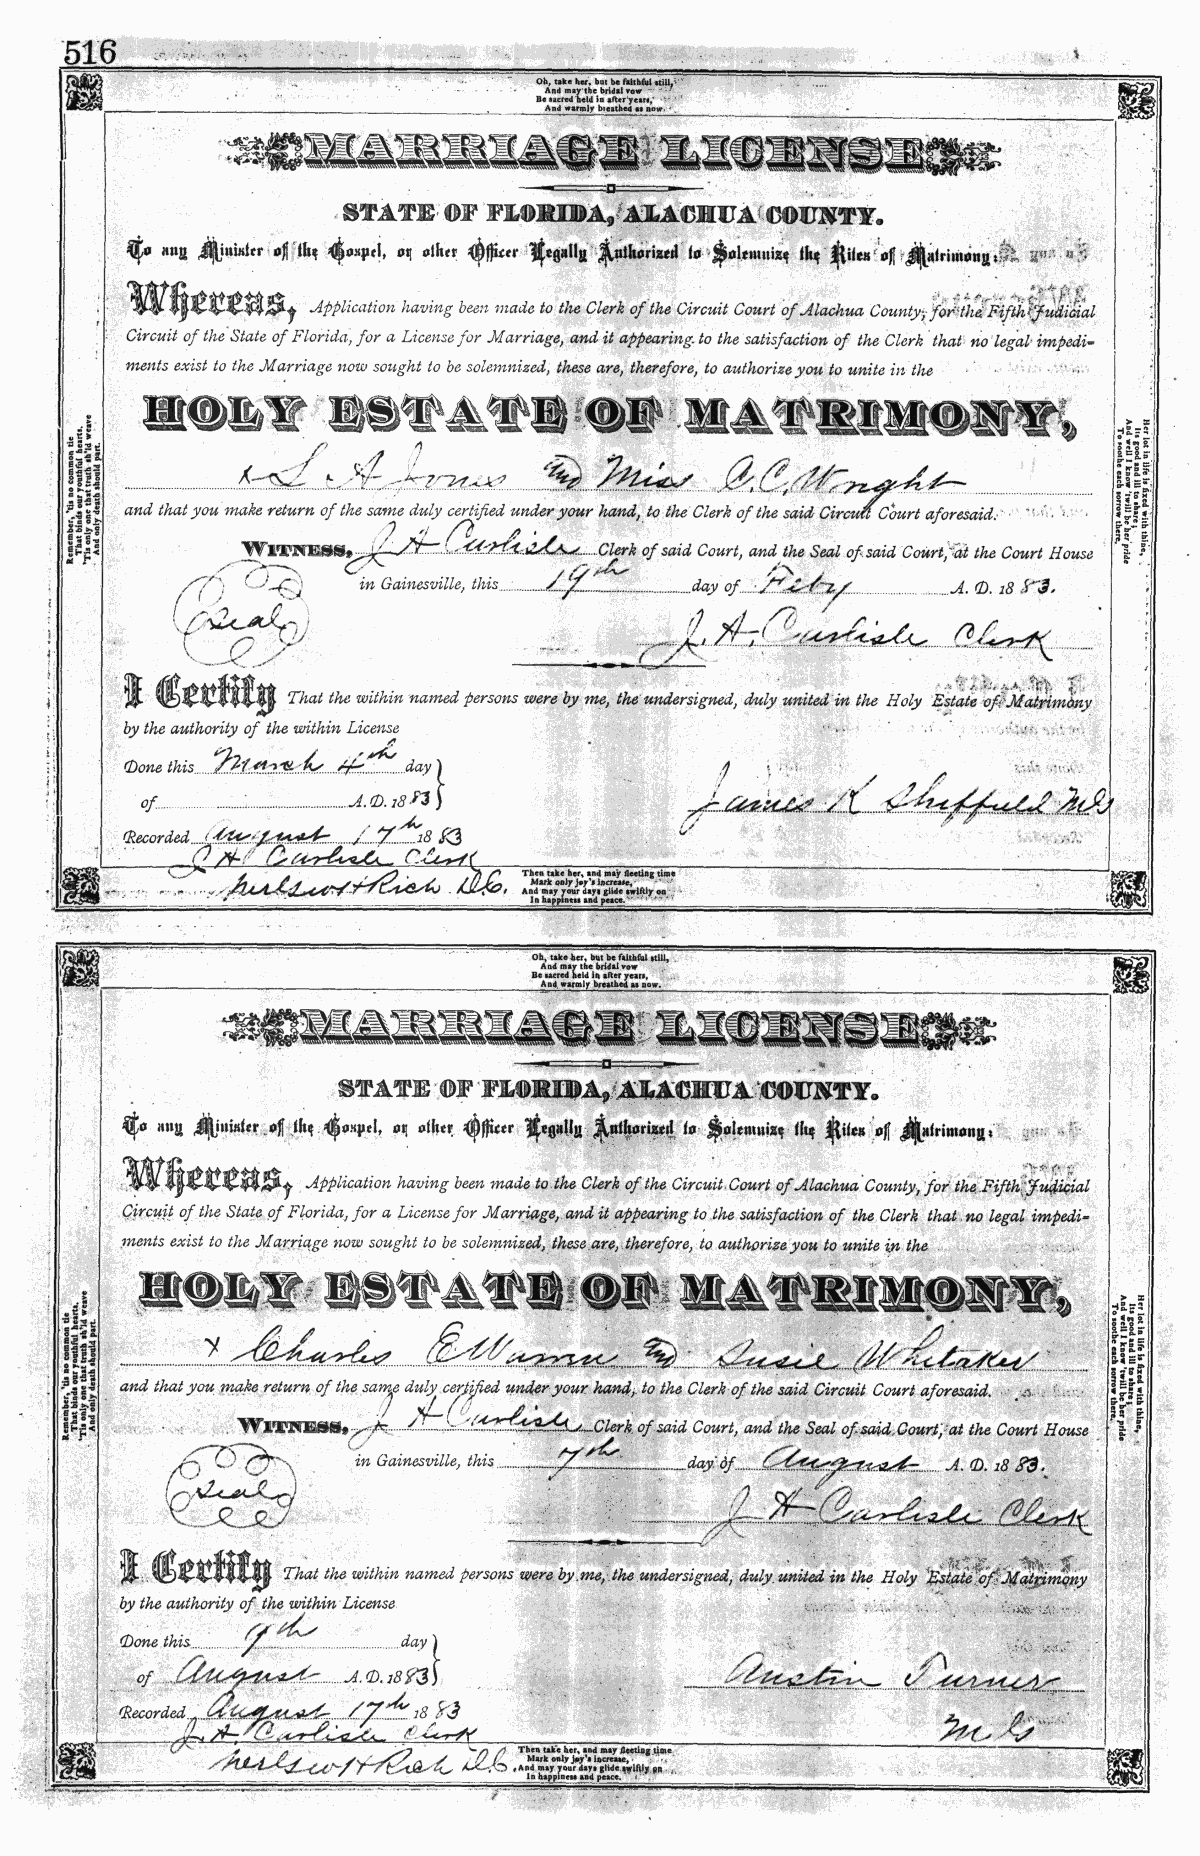 516
Oh, take her, but be faithful still,
And may the bridal vow
Be sacred held in after years,
And warmly breathed as now.
MARRIAGE LICENSE
STATE OF FLORIDA, ALACHUA COUNTY.
To any Minister of the Gospel, or other Officer Legally Authorized to Solemnize the Rites of Matrimony:
Whereas, Application having been made to the Clerk of the Circuit Court of Alachua County, for the Fifth Judicial
Circuit of the State of Florida, for a License for Marriage, and it appearing to the satisfaction of the Clerk that no legal impedi-
ments exist to the Marriage now sought to be solemnized, these are, therefore, to authorize you to unite in the
HOLY ESTATE OF MATRIMONY,
x L A Jones and Miss C. C. Wright
and that you make return of the same duly certified under your hand, to the Clerk of the said Circuit Court aforesaid.
WITNESS, J A Carlisle Clerk of said Court, and the Seal of said Court, at the Court House
in Gainesville, this 19th day of Feby A. D. 1883.
Seal
J. A. Carlisle Clerk
I Certify That the within named persons were by me, the undersigned, duly united in the Holy Estate of Matrimony
by the authority of the within License
Done this March 4th day
of A. D. 1883
James K Sheffield MG
Recorded August 17th 1883
J A Carlisle Clerk
Rich D.C.
Then take her, and may fleeting time
Mark only joy's increase,
And may your days glide swiftly on
In happiness and peace.
Remember, 'tis no common tie
That binds our youthful hearts,
'Tis only one that truth sh'ld weave
And only death should part.
Her lot in life is fixed with thine,
Its good and ill to share;
And well I know 'twill be her pride
To soothe each sorrow there.
Oh, take her, but be faithful still,
And may the bridal vow
Be sacred held in after years,
And warmly breathed as now.
MARRIAGE LICENSE
STATE OF FLORIDA, ALACHUA COUNTY.
To any Minister of the Gospel, or other Officer Legally Authorized to Solemnize the Rites of Matrimony:
Whereas, Application having been made to the Clerk of the Circuit Court of Alachua County, for the Fifth Judicial
Circuit of the State of Florida, for a License for Marriage, and it appearing to the satisfaction of the Clerk that no legal impedi-
ments exist to the Marriage now sought to be solemnized, these are, therefore, to authorize you to unite in the
HOLY ESTATE OF MATRIMONY,
x Charles E Warren and Susie Whitaker
and that you make return of the same duly certified under your hand, to the Clerk of the said Circuit Court aforesaid.
WITNESS, J A Carlisle Clerk of said Court, and the Seal of said Court, at the Court House
in Gainesville, this 7th day of August A. D. 1883.
Seal
J A Carlisle Clerk
I Certify That the within named persons were by me, the undersigned, duly united in the Holy Estate of Matrimony
by the authority of the within License
Done this 9th day
of August A. D. 1883
Austin Turner
MG
Recorded August 17th 1883
J. A. Carlisle Clerk
Rich D.C.
Then take her, and may fleeting time
Mark only joy's increase,
And may your days glide swiftly on
In happiness and peace.
Remember, 'tis no common tie
That binds our youthful hearts,
'Tis only one that truth sh'ld weave
And only death should part.
Her lot in life is fixed with thine,
Its good and ill to share;
And well I know 'twill be her pride
To soothe each sorrow there.